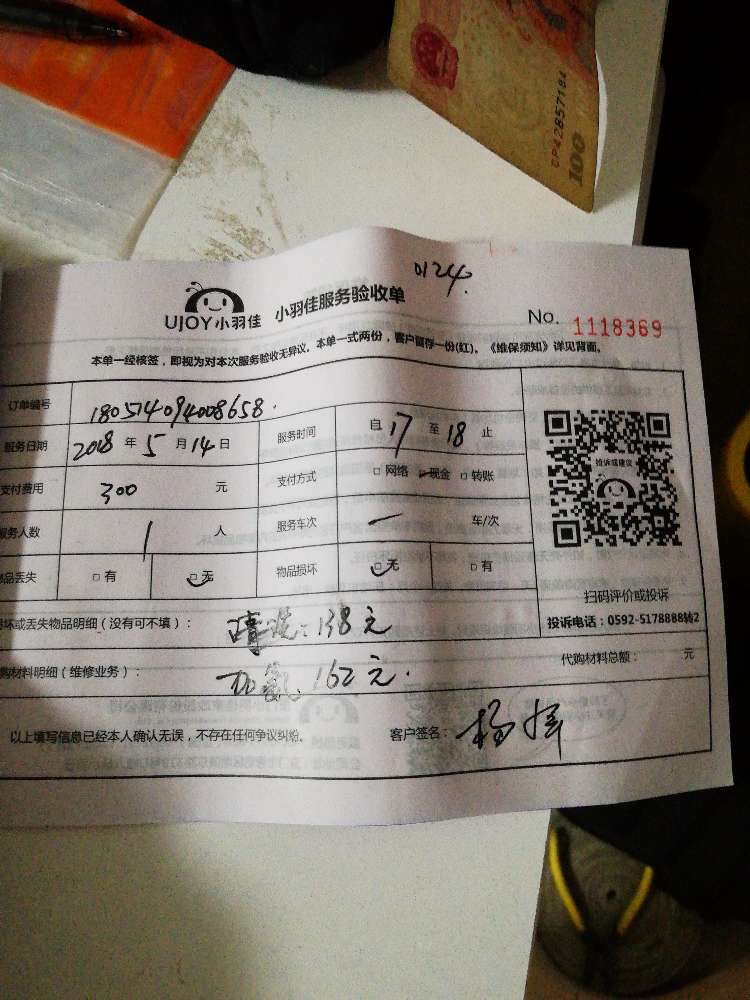 CP42857184
100
0124.
UJOY小羽佳 小羽佳服务验收单
No. 1118369
本单一经核签，即视为对本次服务验收无异议。本单一式两份，客户留存一份(红)。《维保须知》详见背面。
订单编号 180514094008658.
服务日期 2018 年 5 月 14 日 服务时间 自 17 至 18 止
支付费用 300 元 支付方式 □ 网络 □ 现金 □ 转账
服务人数 1 人 服务车次 一 车/次
品丢失 □ 有 □ 无 物品损坏 □ 无 □ 有
投诉或建议
扫码评价或投诉
投诉电话：0592-5178888转2
坏或丢失物品明细（没有可不填）： 清洗：138元
购材料明细（维修业务）： 加氨 162元.
代购材料总额： 元
以上填写信息已经本人确认无误，不存在任何争议纠纷。 客户签名： 杨辉